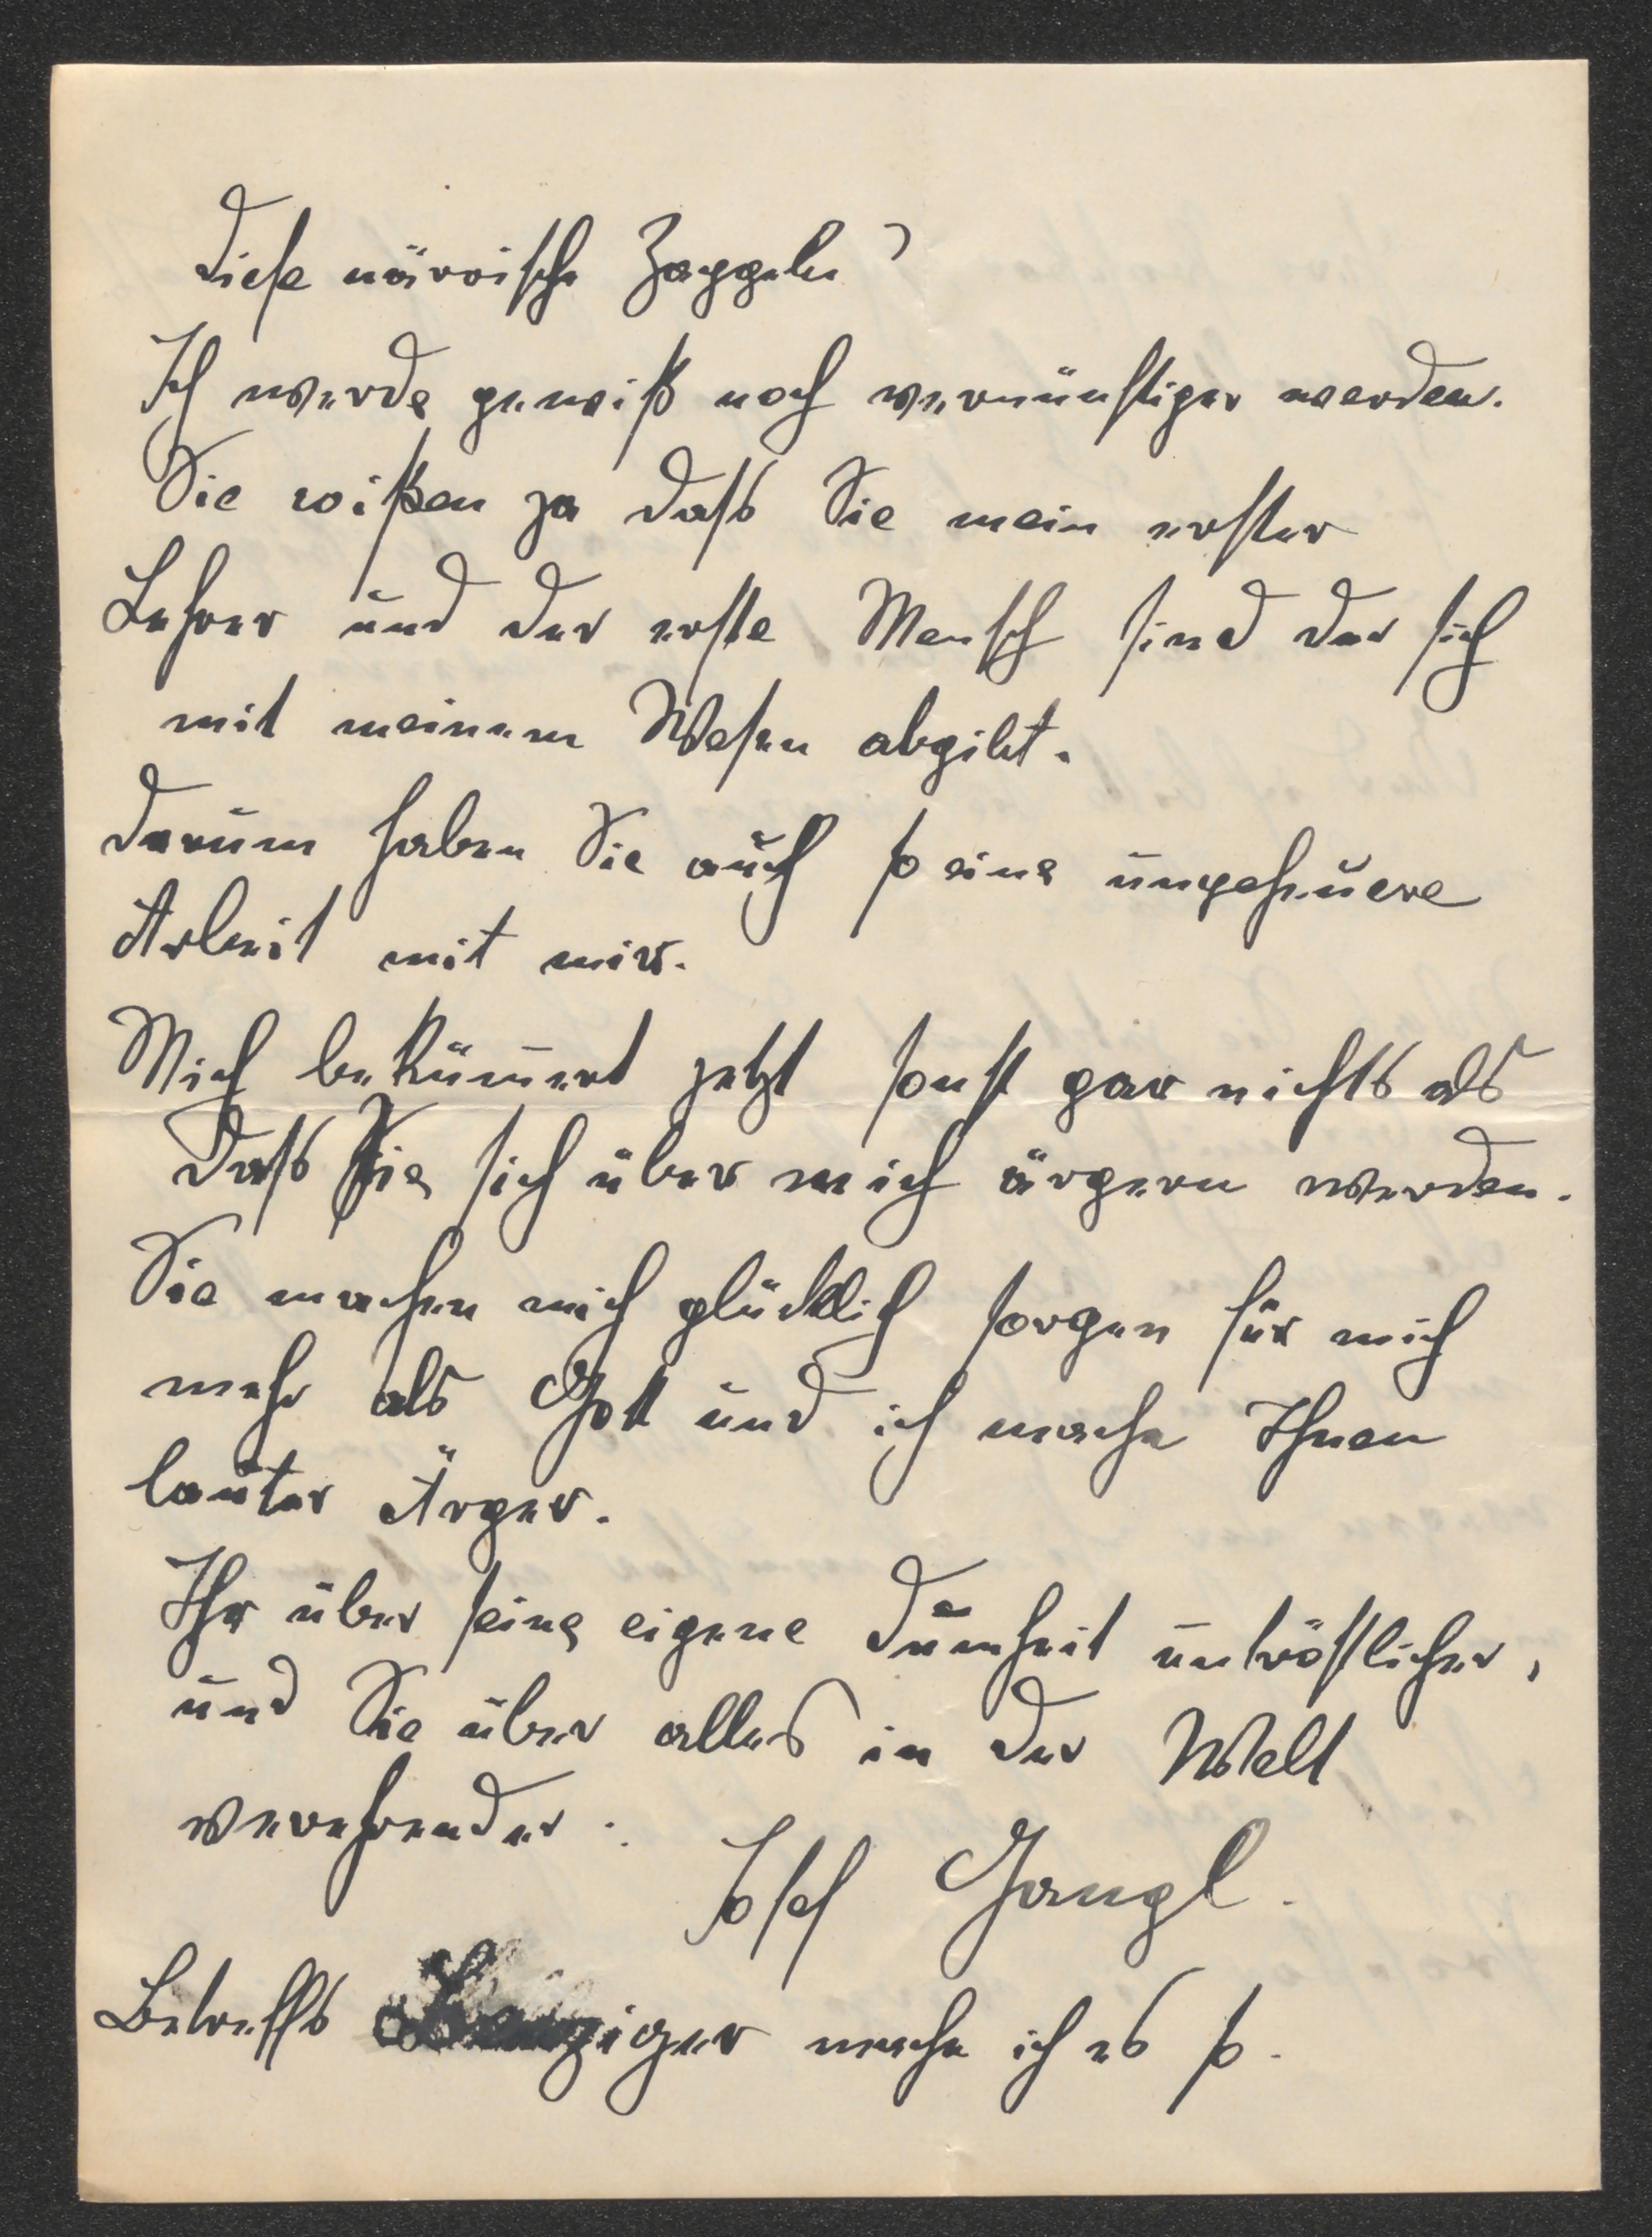 diese närrische Zappeln?
Ich werde gewiß noch vernünftiger werden.
Sie wißen ja dass Sie mein erster
Lehrer und der erste Mensch sind der sich
mit meinem Wesen abgibt.
Darum haben Sie auch so eine ungeheuere
Arbeit mit mir.
Mich bekümmert jetzt sonst gar nichts als
dass Sie sich über mich ärgern werden.
Sie machen mich glücklich sorgen für mich
mehr als Gott und ich mache Ihnen
lauter Ärger.
Ihr über seine eigene Dummheit untröstlicher,
und Sie über alles in der Welt
verehrender:
Josef Gangl.
Betreffs mache ich es so.